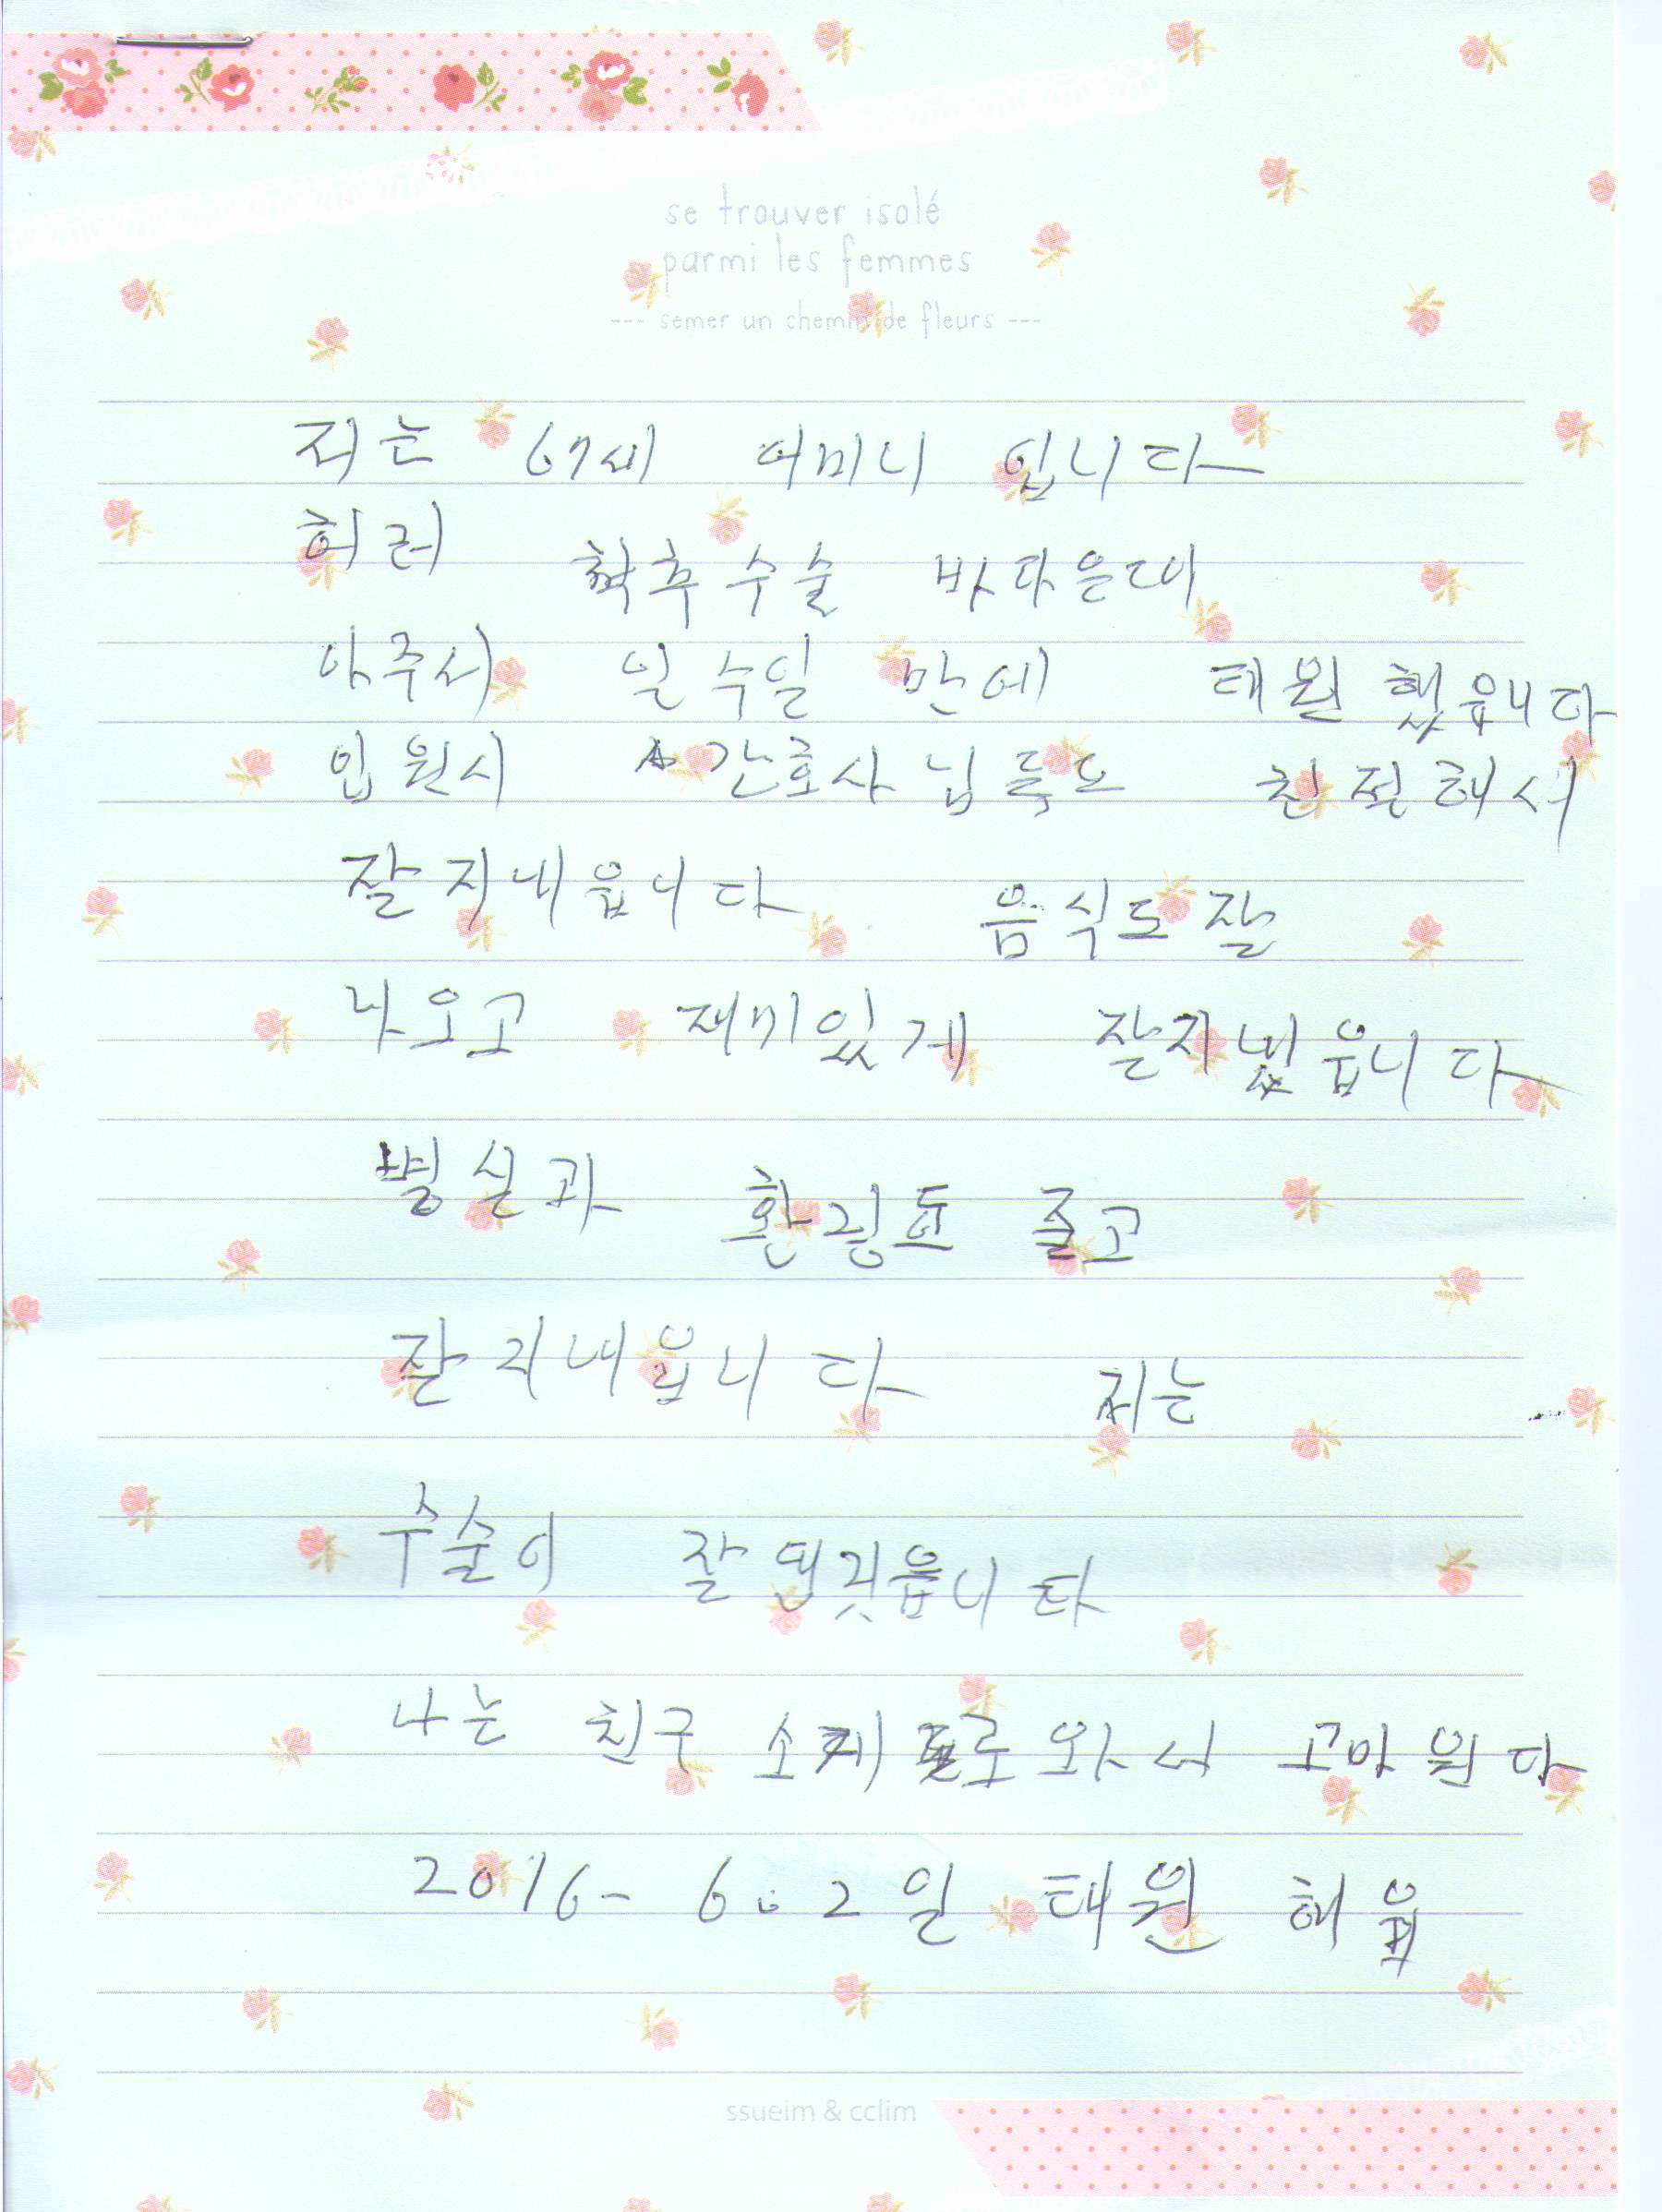 se trouver isolé
parmi les femmes
--- semer un chemin de fleurs ---
저는 67세 어머니 입니다
허리 척추수술 바다은대
아주서 일수일 만에 태원했읍니다
입원시 간호사님들도 친절해서
잘지내읍니다 음식도잘
나오고 재미있게 잘지냈읍니다
병실과 환경도 좋고
잘지내읍니다 저는
수술이 잘 됩것읍니다
나는 친구 소개로 와서 고마워다
2016- 6. 2일 태원 해
ssueim & cclim